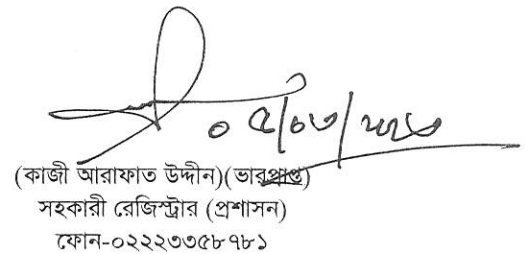 ০৫/০৩/২০২৩
(কাজী আরাফাত উদ্দীন)(ভারপ্রাপ্ত)
সহকারী রেজিস্ট্রার (প্রশাসন)
ফোন-০২২২৩৩৫৮৭৮১